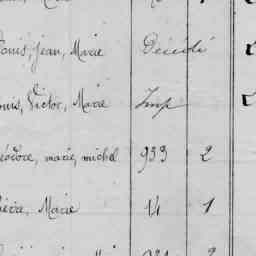 Louis, Jean, Marie Décédé
Louis, Victor, Marie Imp
Théodore, marie, michel 933 2
Pierre, Marie 14 1